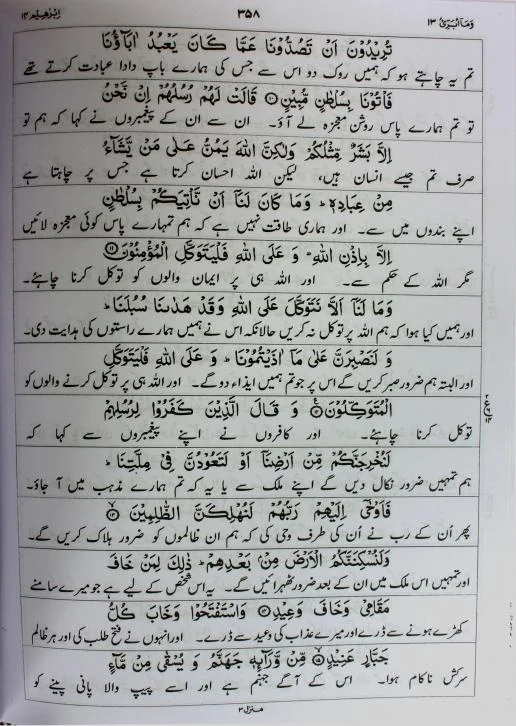 وَمَآ اُبَرِّئُ ۱۳ ۳۵۸ اِبْرٰهِيْم ۱۴
تُرِيْدُوْنَ اَنْ تَصُدُّوْنَا عَمَّا كَانَ يَعْبُدُ اٰبَآؤُنَا
تم یہ چاہتے ہو کہ ہمیں روک دو اس سے جس کی ہمارے باپ دادا عبادت کرتے تھے
فَاْتُوْنَا بِسُلْطٰنٍ مُّبِيْنٍ ۝۱۰ قَالَتْ لَهُمْ رُسُلُهُمْ اِنْ نَّحْنُ
تو تم ہمارے پاس روشن معجزہ لے آؤ۔ ان سے ان کے پیغمبروں نے کہا کہ ہم تو
اِلَّا بَشَرٌ مِّثْلُكُمْ وَلٰكِنَّ اللّٰهَ يَمُنُّ عَلٰى مَنْ يَّشَآءُ
صرف تم جیسے انسان ہیں، لیکن اللہ احسان کرتا ہے جس پر چاہتا ہے
مِنْ عِبَادِهٖ ؕ وَمَا كَانَ لَنَآ اَنْ نَّاْتِيَكُمْ بِسُلْطٰنٍ
اپنے بندوں میں سے۔ اور ہماری طاقت نہیں ہے کہ ہم تمہارے پاس کوئی معجزہ لائیں
اِلَّا بِاِذْنِ اللّٰهِ ؕ وَ عَلَى اللّٰهِ فَلْيَتَوَكَّلِ الْمُؤْمِنُوْنَ ۝۱۱
مگر اللہ کے حکم سے۔ اور اللہ ہی پر ایمان والوں کو توکل کرنا چاہئے۔
وَمَا لَنَآ اَلَّا نَتَوَكَّلَ عَلَى اللّٰهِ وَقَدْ هَدٰىنَا سُبُلَنَا ؕ
اور ہمیں کیا ہوا کہ ہم اللہ پر توکل نہ کریں حالانکہ اس نے ہمیں ہمارے راستوں کی ہدایت دی۔
وَ لَنَصْبِرَنَّ عَلٰى مَآ اٰذَيْتُمُوْنَا ؕ وَ عَلَى اللّٰهِ فَلْيَتَوَكَّلِ
اور البتہ ہم ضرور صبر کریں گے اس پر جو تم ہمیں ایذاء دو گے۔ اور اللہ ہی پر توکل کرنے والوں کو
الْمُتَوَكِّلُوْنَ ۝۱۲ وَ قَالَ الَّذِيْنَ كَفَرُوْا لِرُسُلِهِمْ
توکل کرنا چاہئے۔ اور کافروں نے اپنے پیغمبروں سے کہا کہ
لَنُخْرِجَنَّكُمْ مِّنْ اَرْضِنَآ اَوْ لَتَعُوْدُنَّ فِيْ مِلَّتِنَا ؕ
ہم تمہیں ضرور نکال دیں گے اپنے ملک سے یا یہ کہ تم ہمارے مذہب میں آ جاؤ۔
فَاَوْحٰٓى اِلَيْهِمْ رَبُّهُمْ لَنُهْلِكَنَّ الظّٰلِمِيْنَ ۝۱۳
پھر اُن کے رب نے اُن کی طرف وحی کی کہ ہم ان ظالموں کو ضرور ہلاک کریں گے۔
وَلَنُسْكِنَنَّكُمُ الْاَرْضَ مِنْۢ بَعْدِهِمْ ؕ ذٰلِكَ لِمَنْ خَافَ
اور تمہیں اس ملک میں ان کے بعد ضرور ٹھہرائیں گے۔ یہ اس شخص کے لیے ہے جو میرے سامنے
مَقَامِيْ وَخَافَ وَعِيْدِ ۝۱۴ وَاسْتَفْتَحُوْا وَخَابَ كُلُّ
کھڑے ہونے سے ڈرے اور میرے عذاب کی وعید سے ڈرے۔ اور انہوں نے فتح طلب کی اور ہر ظالم
جَبَّارٍ عَنِيْدٍ ۝۱۵ مِّنْ وَّرَآئِهٖ جَهَنَّمُ وَ يُسْقٰى مِنْ مَّآءٍ
سرکش ناکام ہوا۔ اس کے آگے جہنم ہے اور اسے پیپ والا پانی پینے کو
منزل ۳